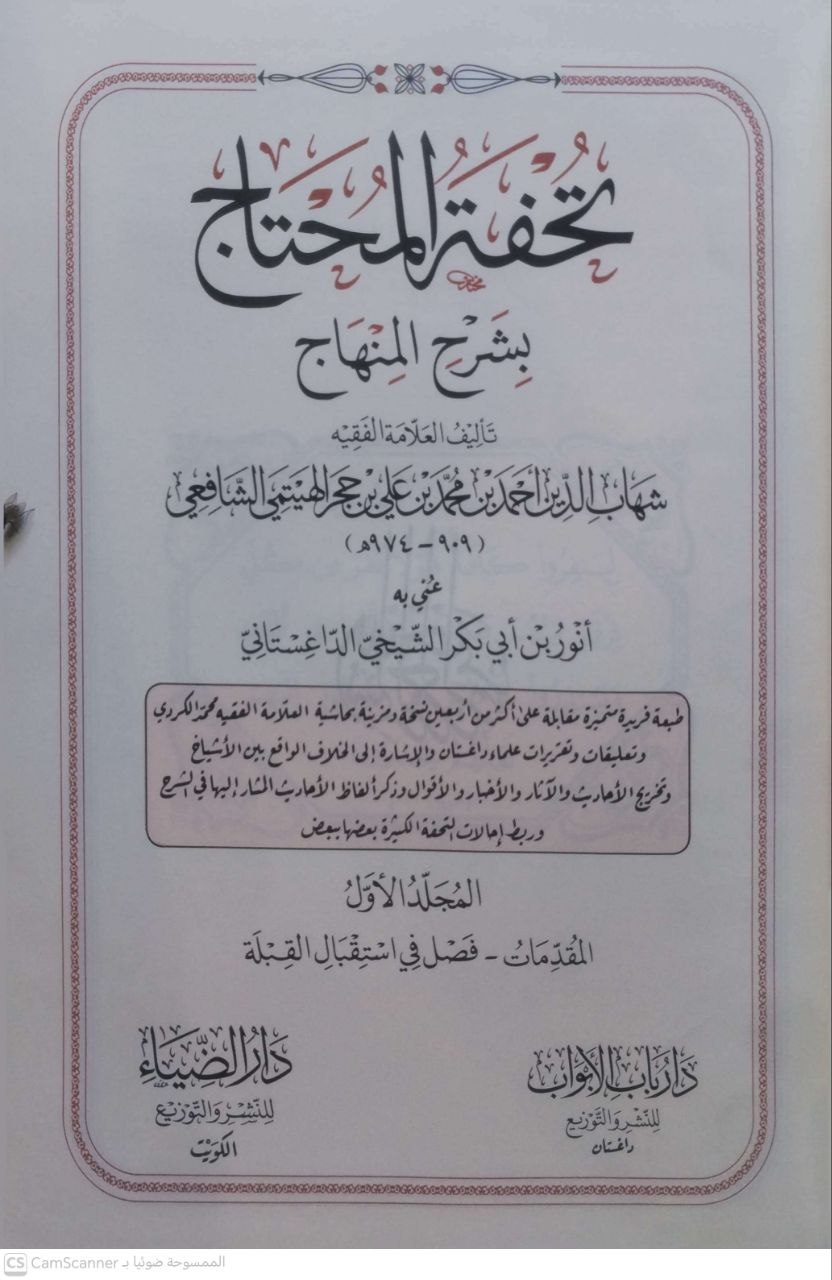 تُحْفَةُ المُحْتَاجِ
بِشَرْحِ المِنْهَاجِ
تَأليفُ العَلّامَة الفَقِيْه
شهَابِ الدِّين أَحْمَدَ بْن مُحمَّد بْن عَلي بْن حَجَر الهَيتَمِيّ الشَّافِعِيّ
(٩٠٩ - ٩٧٤هـ)
عُنِيَ به
أنْوَر بْن أَبي بَكْر الشّيْخِيّ الدّاغِسْتَانيّ
طبعة فريدة متميزة مقابلة على أكثر من أربعين نسخة ومزينة بحاشية العلامة الفقيه محمد الكردي
وتعليقات وتقريرات علماء داغستان والإشارة إلى الخلاف الواقع بين الأشياخ
وتخريج الأحاديث والآثار والأخبار والأقوال وذكر ألفاظ الأحاديث المشار إليها في الشرح
وربط إحالات التحفة الكثيرة بعضها ببعض
المُجَلّدُ الأوَّلُ
المُقدِّمَاتُ - فَصْل في اسْتِقْبَال القِبْلَة
دَار بَاب الأبْوَاب
للنَّشْرِ وَالتَّوْزيع
داغستان
دَارُ الضِّيَاءِ
للنَّشْرِ وَالتَّوْزيْعِ
الكوَيْت
CS CamScanner الممسوحة ضوئيا بـ